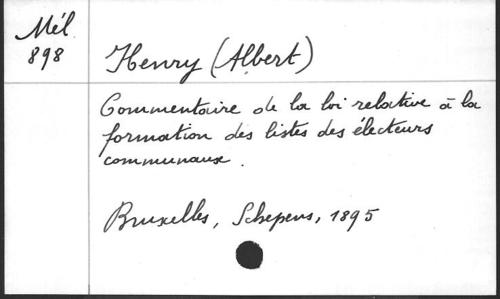 Mél
898
Henry (Albert)
Commentaire de la loi relative à la
formation des listes des électeurs
communaux.
Bruxelles, Schepens, 1895